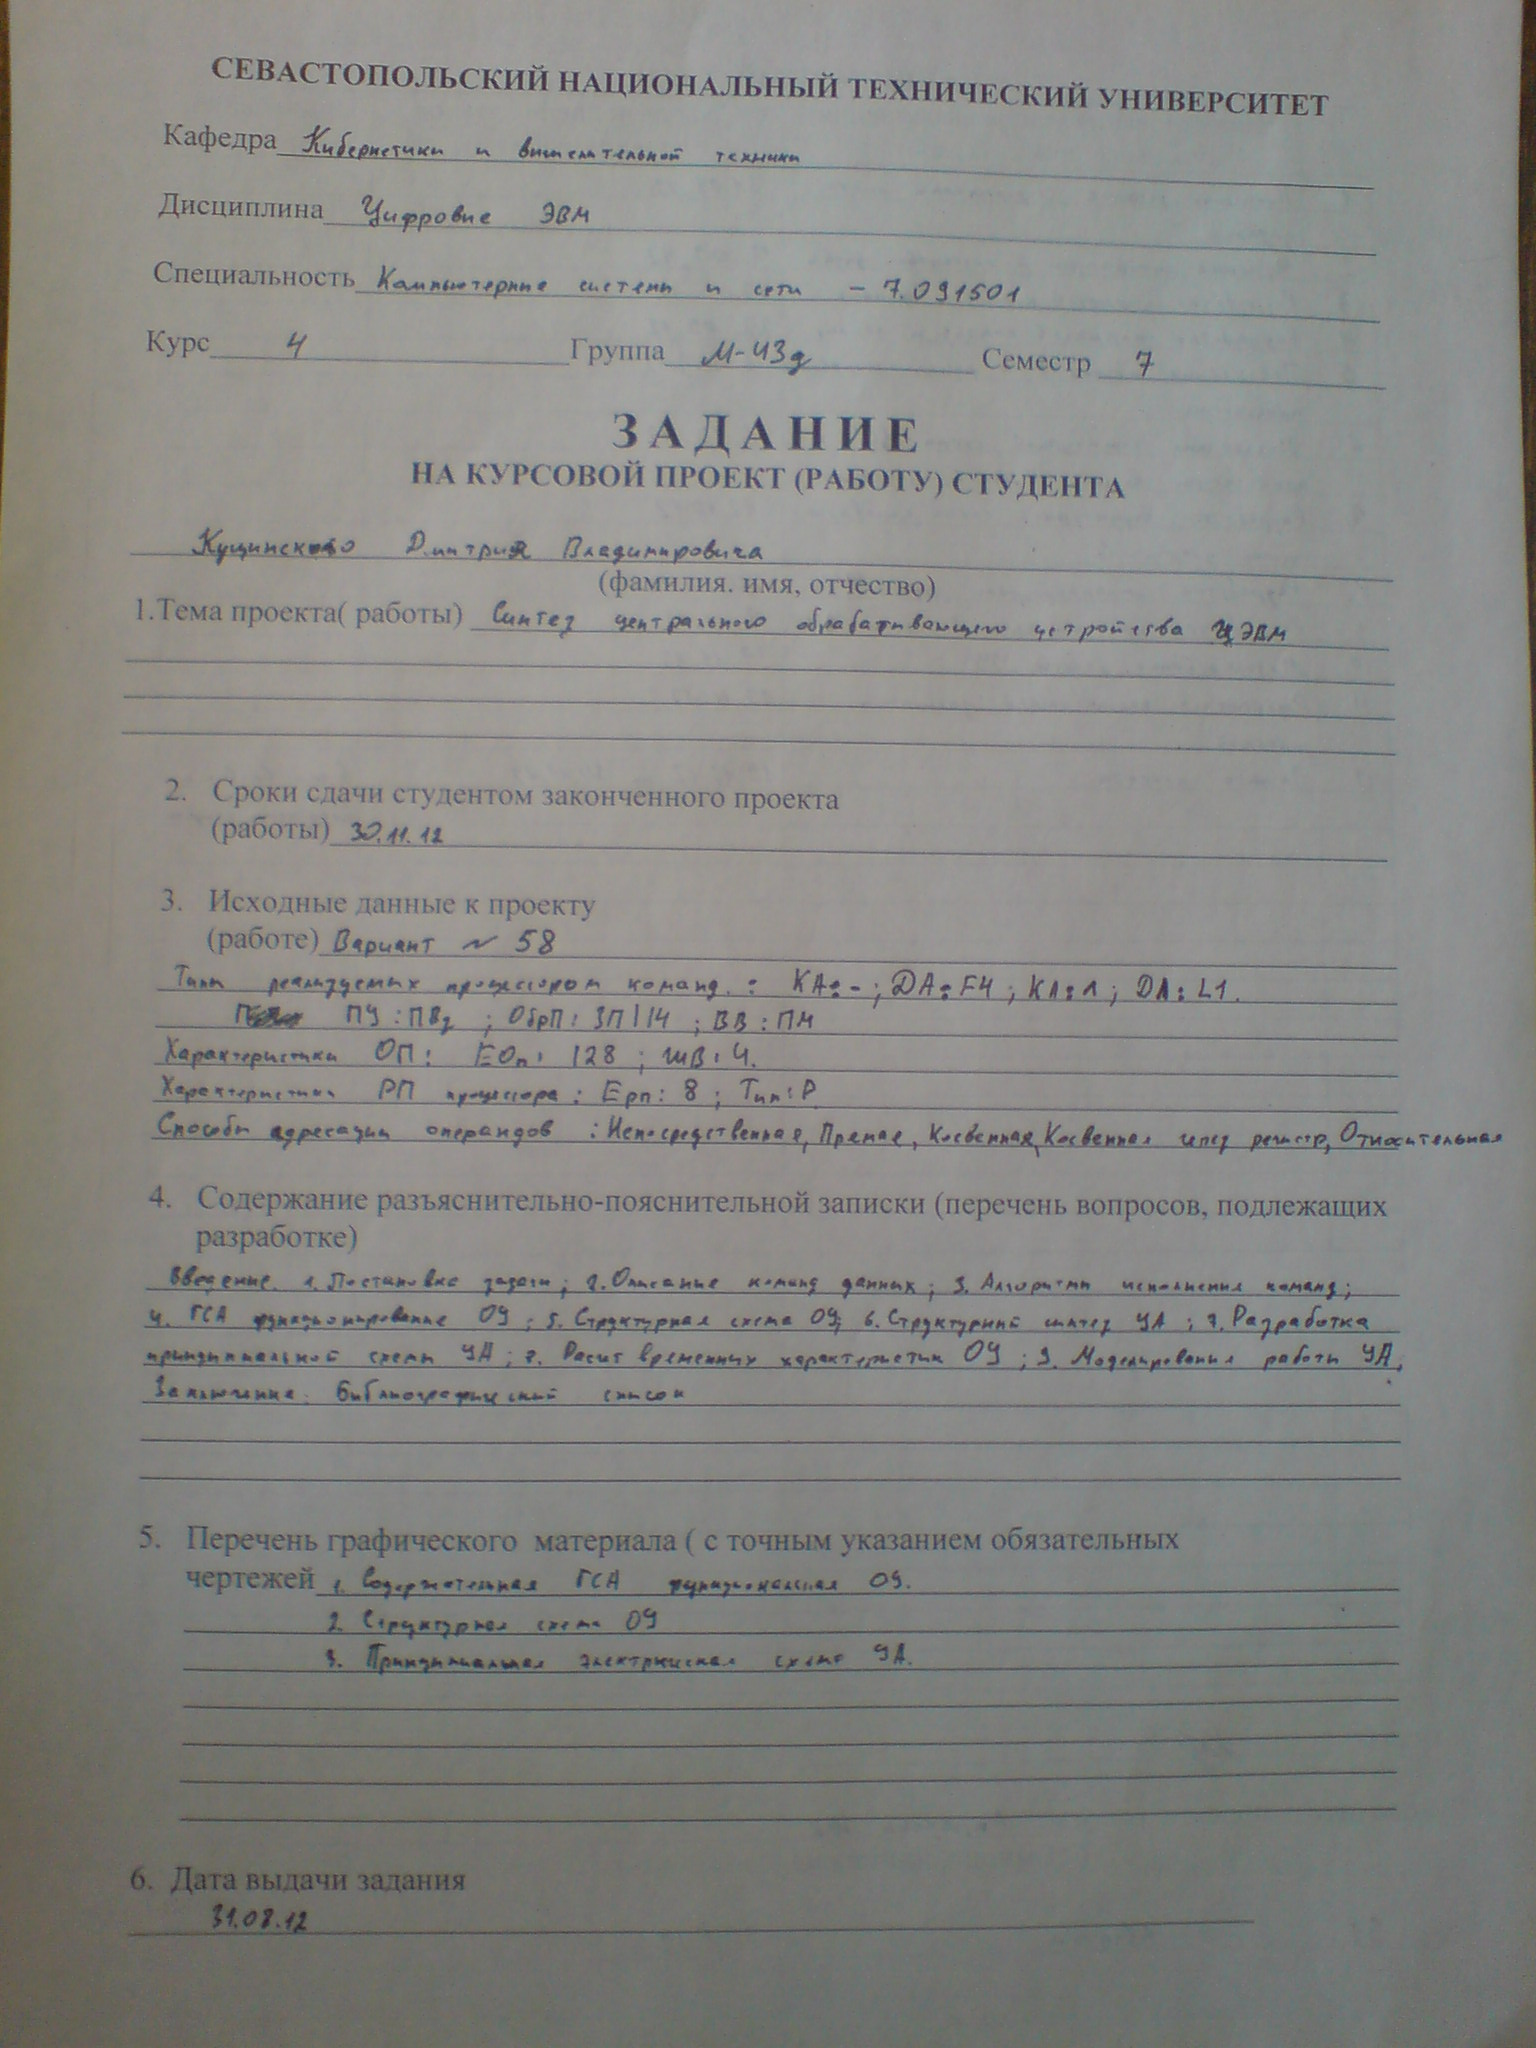 СЕВАСТОПОЛЬСКИЙ НАЦИОНАЛЬНЫЙ ТЕХНИЧЕСКИЙ УНИВЕРСИТЕТ
Кафедра Кибернетики и вычислительной техники
Дисциплина Цифровые ЭВМ
Специальность Компьютерные системы и сети - 7.091501
Курс 4 Группа М-43д Семестр 7
ЗАДАНИЕ
НА КУРСОВОЙ ПРОЕКТ (РАБОТУ) СТУДЕНТА
Кущинского Дмитрия Владимировича
(фамилия. имя, отчество)
1.Тема проекта( работы) Синтез центрального обрабатывающего устройства ЦЭВМ
2. Сроки сдачи студентом законченного проекта
(работы) 30.11.12
3. Исходные данные к проекту
(работе) Вариант № 58
Типы реализуемых процессором команд : КА: - ; DA: F4 ; КЛ: 1 ; DЛ: L1.
ПУ : ПВд ; ОбрП: ЗП114 ; ВВ : ПМ
Характеристики ОП: Еоп: 128 ; ШВ: 4.
Характеристики РП процессора : Ерп: 8 ; Тип: Р
Способы адресации операндов : Непосредственная, Прямая, Косвенная, Косвенная через регистр, Относительная
4. Содержание разъяснительно-пояснительной записки (перечень вопросов, подлежащих
разработке)
Введение. 1. Постановка задачи ; 2. Описание команд данных ; 3. Алгоритмы исполнения команд ;
4. ГСА функционирование ОУ ; 5. Структурная схема ОУ; 6. Структурный синтез УА ; 7. Разработка
принципиальной схемы УА ; 8. Расчет временных характеристик ОУ ; 9. Моделирования работы УА,
Заключение. Библиографический список
5. Перечень графического материала ( с точным указанием обязательных
чертежей 1. Содержательная ГСА функциональная ОУ.
2. Структурная схема ОУ
3. Принципиальная электрическая схема УА.
6. Дата выдачи задания
31.08.12